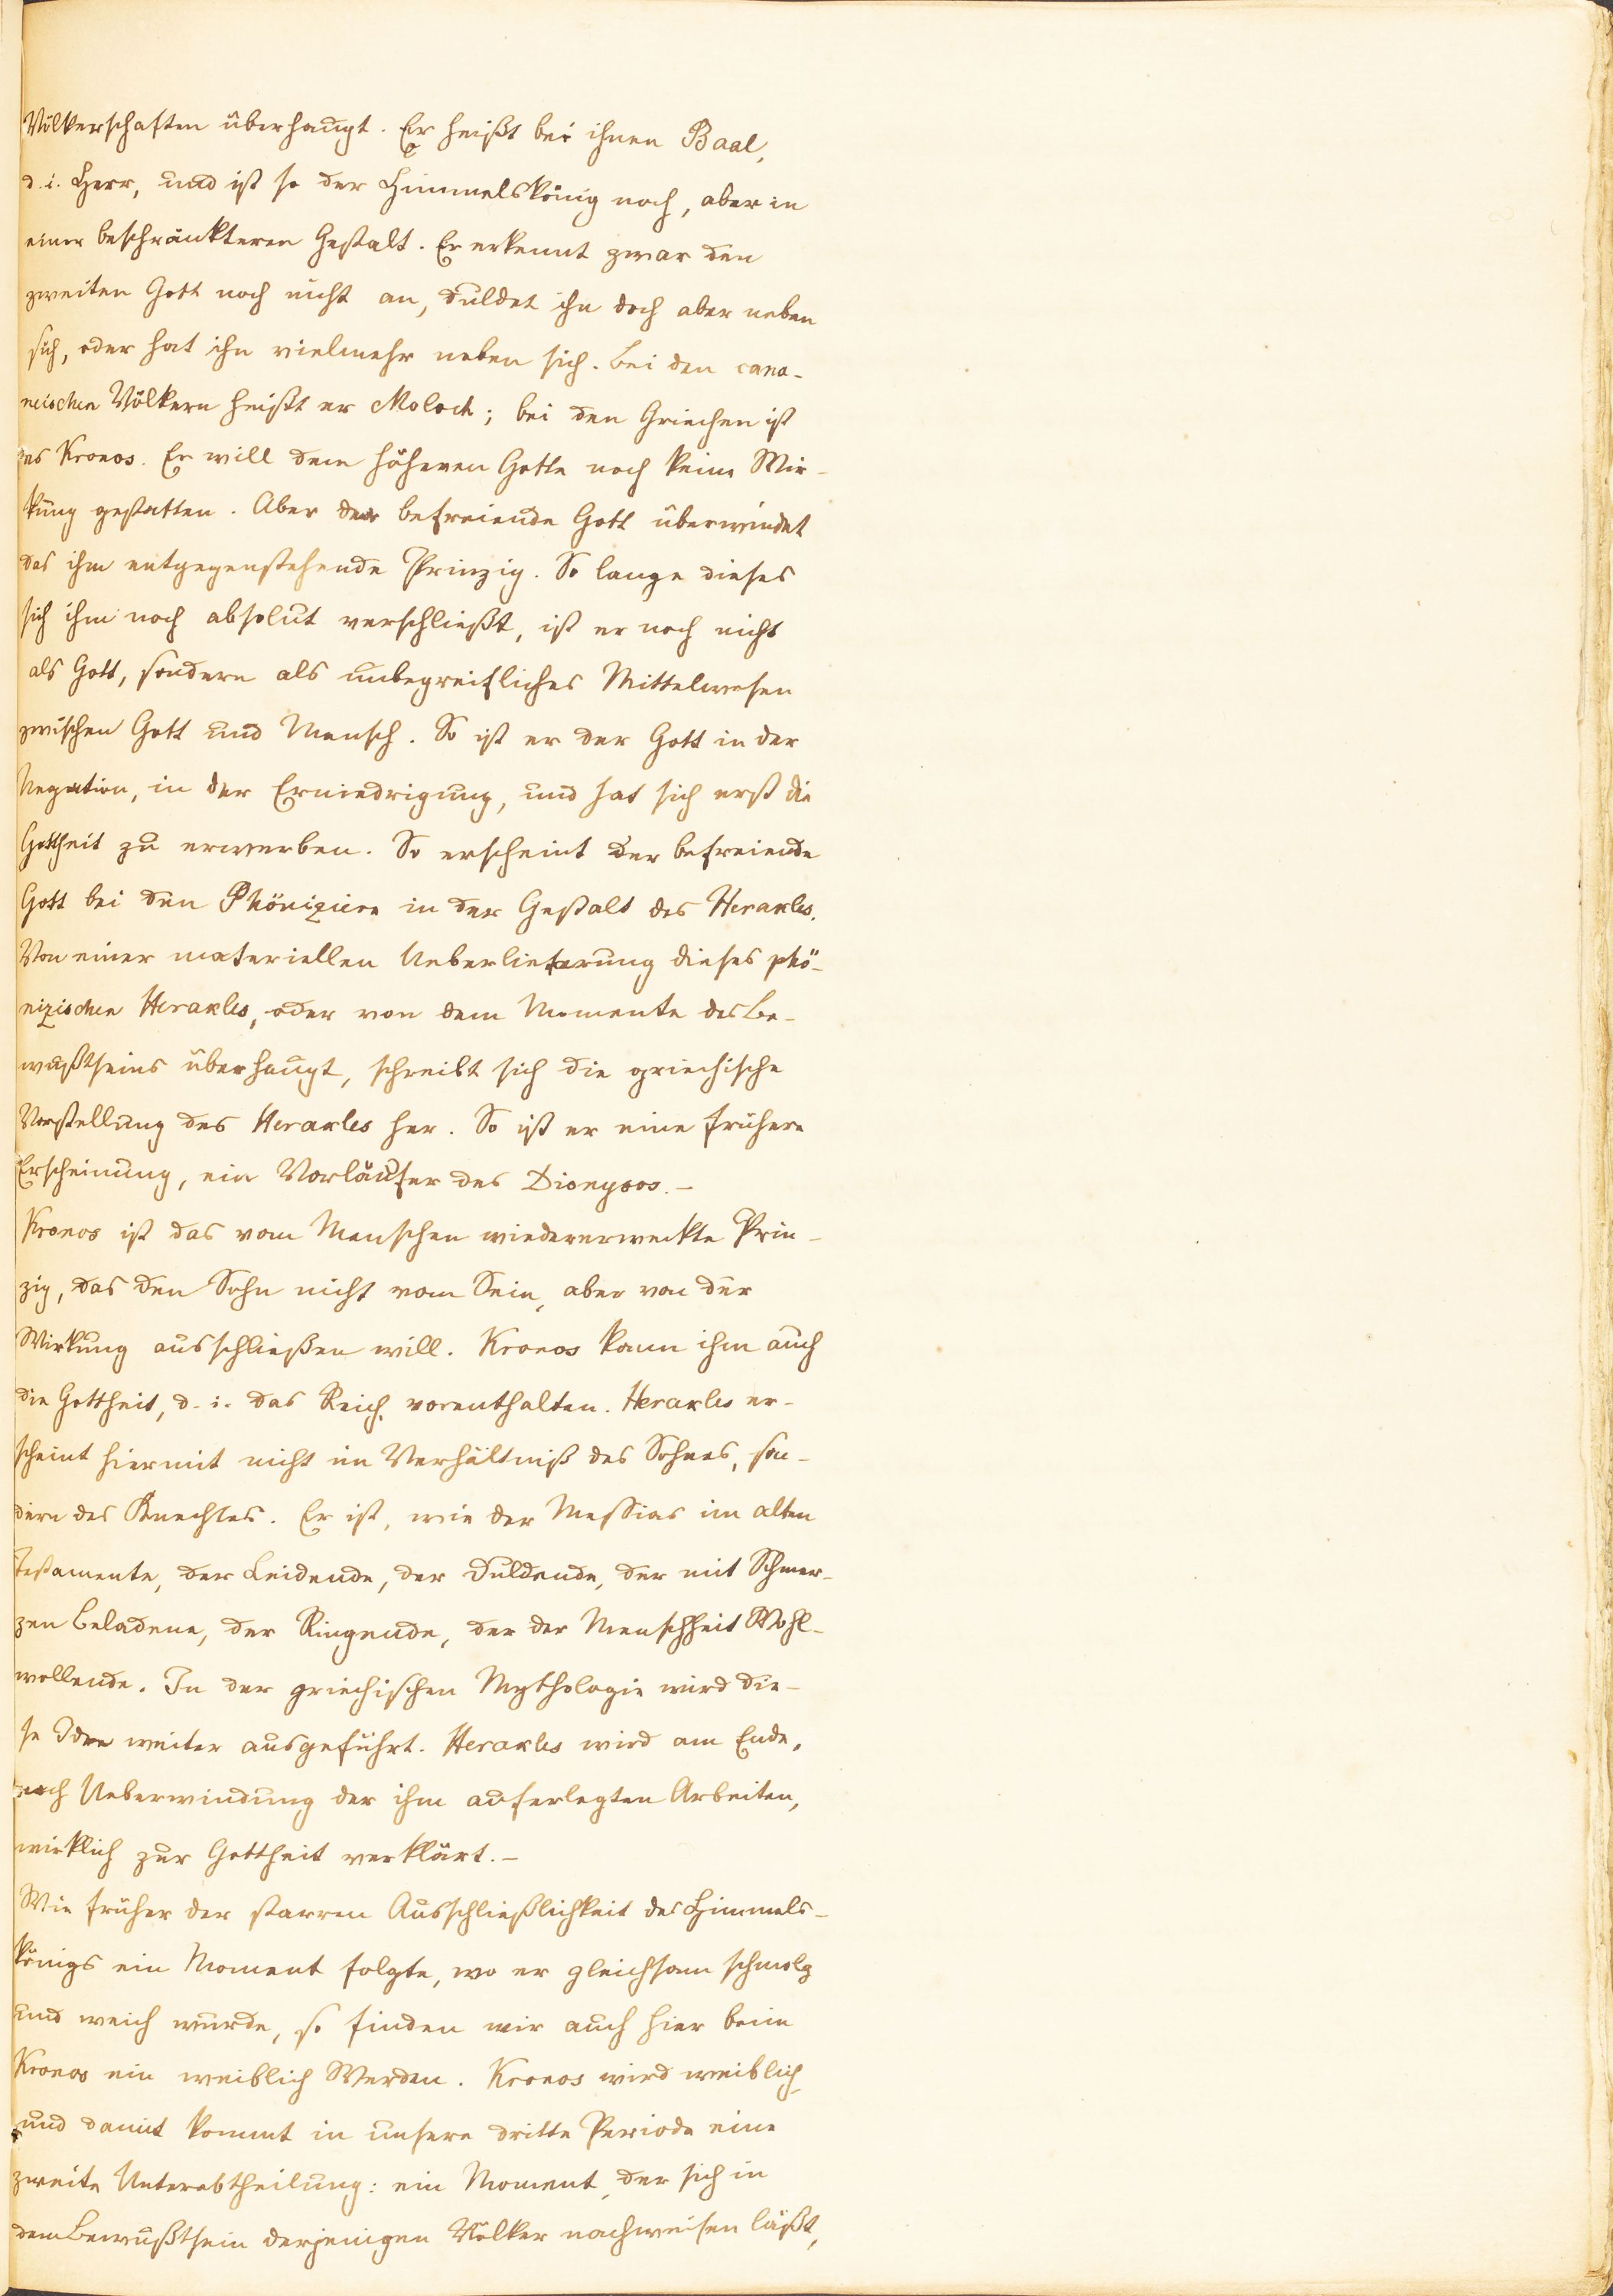 Völkerschaften überhaupt. Er heißt bei ihnen Baal,
d. i. Herr, und ist so der Himmelskönig noch, aber in
einer beschränkteren Gestalt. Er erkennt zwar den
zweiten Gott noch nicht an, duldet ihn doch aber neben
sich, oder hat ihn vielmehr neben sich. Bei den cana-
neischen Völkern heißt er Moloch; bei den Griechen ist
es Kronos. Er will dem höheren Gotte noch keine Wir-
kung gestatten. Aber der befreiende Gott überwindet
das ihm entgegenstehende Prinzip. So lange dieses
sich ihm noch absolut verschließt, ist er noch nicht
als Gott, sondern als unbegreifliches Mittelwesen
zwischen Gott und Mensch. So ist er der Gott in der
Negation, in der Erniedrigung, und hat sich erst die
Gottheit zu erwerben. So erscheint der befreiende
Gott bei den Phöniziern in der Gestalt des Herakles.
Von einer materiellen Ueberlieferung dieses phö-
nizischen Herakles, oder von dem Momente des Be-
wußtseins überhaupt, schreibt sich die griechische
Vorstellung des Herakles her. So ist er eine frühere
Erscheinung, ein Vorläufer des Dionysos.-
Kronos ist das vom Menschen wiedererweckte Prin-
zip, das den Sohn nicht vom Sein, aber von der
Wirkung ausschließen will. Kronos kann ihm auch
die Gottheit, d. i. das Reich vorenthalten. Herakles er-
scheint hiermit nicht im Verhältniß des Sohnes, son-
dern des Knechtes. Er ist, wie der Messias im alten
Testamente, der Leidende, der Duldende, der mit Schmer-
zen Beladene, der Ringende, der der Menschheit Wohl-
wollende. In der griechischen Mythologie wird die-
se Idee weiter ausgeführt. Herakles wird am Ende,
nach Ueberwindung der ihm auferlegten Arbeiten,
wirklich zur Gottheit verklärt.-
Wie früher der starren Ausschließlichkeit des Himmels-
königs ein Moment folgte, wo er gleichsam schmolz
und weich wurde, so finden wir auch hier beim
Kronos ein weiblich Werden. Kronos wird weiblich,
und damit kommt in unsere dritte Periode eine
zweite Unterabtheilung: ein Moment, der sich in
dem Bewußtsein derjenigen Völker nachweisen läßt,